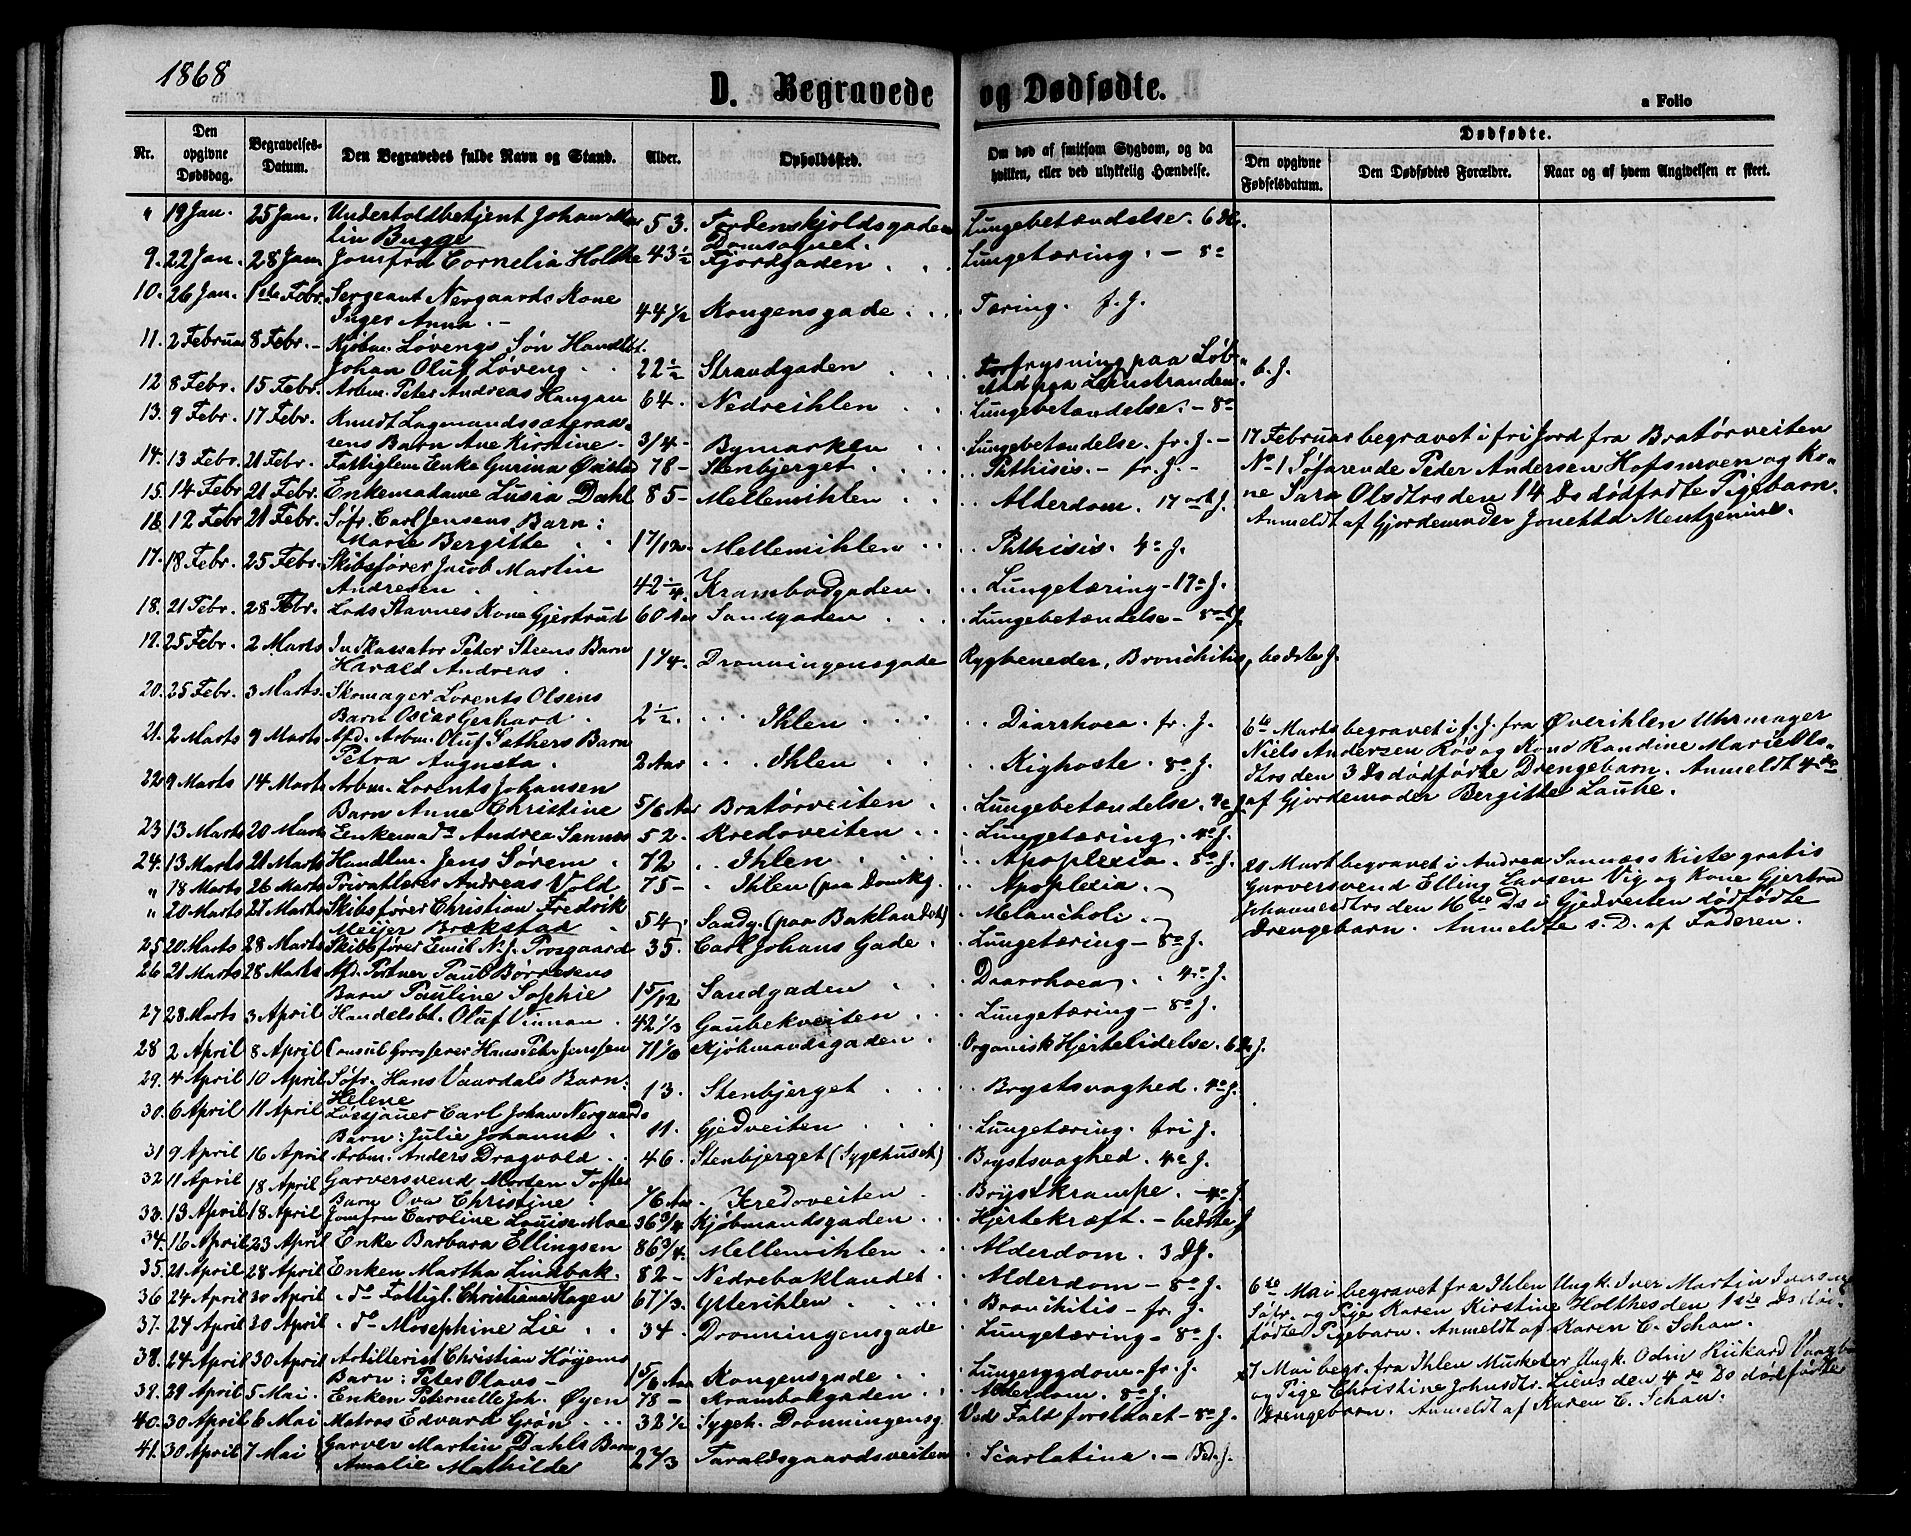 1868
D. Begravede og Dødfødte.
a Folio
Nr.
Den opgivne Dødsdag.
Begravelses-Datum.
Den Begravedes fulde Navn og Stand.
Alder.
Opholdssted.
Om død af smitsom Sygdom, og da hvilken, eller ved ulykkelig Hændelse.
Dødfødte.
Den opgivne Fødselsdatum.
Den Dødfødtes Forældre.
Naar og af hvem Angivelsen er skeet.
" 19 Jan. 25 Jan. Undertoldbetjent Johan Mar
tin Bugge 53. Tordenskjoldsgaden Lungebetændelse.
Domsognet.
9. 22 Jan. 28 Jan. Jomfru Cornelia Holthe 43½ Fjordgaden . . . Lungetæring. – 8º
10. 26 Jan. 1ste Febr. Sergeant Nergaards Kone
Inger Anna. – 44½ Kongensgade . . . Tæring. f. J.
11. 2 Februar 8 Febr. – Kjøbm. Løvengs Søn Handlbt.
Johan Oluf Løveng . . 22½ Strandgaden . . . Forfrysning paa Løb
12 8 Febr. 15 Febr. Arbm. Peter Andreas Haugan 64. Nedreihlen . . Lungebetændelse. – 8º
13. 9 Febr. 17 Febr. Knudt Lagmandssætgraa
sens Barn Ane Kirstine. 3/4 - Bymarken . . Lungebetændelse. fr. J. –
14. 13 Febr. 21 Febr. Fattiglem Enke Gurina 78 - Stenbjerget . . . Phthisis. – fr. J. –
15. 14 Febr 21 Febr. Enkemadame Lusia Dahl 85 - Mellemihlen . . Alderdom. 17 J.
16. 12 Febr 21 Febr. Søfr. Carl Jensens Barn:
Marie Bergitte . . 17/12 Mellemihlen . . Phthisis. 4º J.
17. 18 Febr. 25 Febr. Skibsfører Jacob Martin
Andresen . . 42¼. Krambodgaden . . Lungetæring – 19º J.
18. 21 Febr. 28 Febr. Lods Stavnes Kone Gjertrud 60 Aar Sandgaden . . Lungebetændelse – 8º J.
19. 25 Febr. 2 Marts Inkassator Peter Steens Barn
Harald Andreas . 1¼. Dronningensgade Rygbeneder, Bronchitis, bedste J.
20. 25 Febr. 3 Marts. Skomager Lorents Olsens
Barn Oscar Gerhard . 2½. . . . Ihlen . . . Diarrhoea. fr. J.
21. 2 Marts 9 Marts Afd. Arbm. Oluf Sæthers Barn
Petra Augusta . 2 Aar . . . Ihlen . . Kighoste. 8º J.
22 9 Marts 14 Marts Arbm. Lorents Johansen
Barn Anne Christine 5/6 Aar Bratørveiten . Lungebetændelse.
23 13 Marts 20 Marts Enkemad. Andrea Sannæs 52. Kredoveiten . . Lungetæring. 4º J.
24. 13 Marts 21 Marts Handlm. Jens Sørem . 72 . Ihlen . . . Apoplexia. 8º J.
" 18 Marts 26 Marts Privatlærer Andreas Vold 75 - . Ihlen (paa Domkg. . Apoplexia. –
" 20 Marts 27 Marts Skibsfører Christian Fredrik
Meijer Brækstad . 54 Sandg. (paa Baklandet) . Melancholi. –
25. 20. Marts 28 Marts Skibsfører Emil N. J. Prosgaard 35. Carl Johans Gade . Lungetæring – 8º J.
26 21 Marts 28 Marts Afd. Portner Paul Børresens
Barn Pauline Sophie 15/12 Sandgaden . . Diarrhoea . . 4º J.
27 28 Marts 3 April Handelsbt. Oluf Vinnan . 42⅓ Gaubekveiten . . Lungetæring – 8º J.
28 2 April 8 April Consul Grosserer Hans Peter Jenssen Kjøbmandsgaden . Organisk Hjertelidelse.
29. 4 April 10 April Søfr. Hans Vaardals Barn:
Helene 13. Stenbjerget . . . Brystsvaghed. 4º J.
30. 6 April 11 April Løssjauer Carl Johan Nergaards
Barn: Julie Johanna . 11. Gjedveiten . . . Lungetæring. fri J.
31 9 April 16 April Arbm. Anders Dragvold . . 46. Stenbjerget (Sygehuset) Brystsvaghed. 4º J.
32 11 April 18 April Garversvend Morten Tofter
Barn Ova Christine . Kredoveiten . . Brystkrampe. – 4º J.
33. 13 April 18 April Jomfru Caroline Louise Moe 36¾ Kjøbmandsgaden . . Hjertekræft. – bedste J
34. 16 April 23 April Enke Barbara Ellingsen 86¾. Mellemihlen . . Alderdom.
35. 21 April 28 April Enken Martha Lindbak. 82 - Nedrebaklandet . Alderdom – 8º J.
36 24 April 30 April . dº Fattigl. Christiana Hagen 67⅓. Ytterihlen . . . Bronchitis – fr. J.
37. 24 April 30 April . dº Mosephine Lie . . 34. Dronningensgade . Lungetæring – 8º J.
38. 24 April 30 April Artillerist Christian Høyems
Barn: Peter Olaus – Kongensgade . . Lungesygdom – fr. J.
39. 29 April 5 Mai. Enken Peternelle Joh. Øyen 78 – Krambodgaden . Alderdom. 8º J.
40. 30 April 6 Mai Matros Edvard Grøn . . . 32½ Sygeh. Dronningensg. Ved Fald forslaaet – 8º J.
41. 30 April 7 Mai Garver Martin Dahls Barn
Amalie Mathilde 2⅔ Taraldsgaardsveiten Scarlatina. – Bed. J.
17 Februar begravet i fri Jord fra Bratørveiten
No 1 Søfarende Peder Andersen Hofsmoen og Ko-
ne Sara Olsdtrs den 14 Ds dødfødte Pigebarn.
Anmeldt af Gjordemoder Jonetta
6te Marts begravet i f. J. fra Øverihlen Uhrmager
Niels Andersen Røv og Kone Randine Marie Ols-
dtrs den 3 Ds dødfødte Drengebarn. Anmeldt 4de Ds
af Gjordemoder Bergitte Lauke.
21 Mart begravet i Andrea Sannæss Kiste gratis
Garversvend Elling Larsen Vig og Kone Gjertrud
Johannesdtrs den 16de Ds i Gjedveiten dødfødte
Drengebarn. Anmeldte s. D. af Faderen.
6te Mai begravet fra Ihlen Ungk. Iver Martin Iversens
Søfr. og Pige Karen Kirstine Holthes den 1ste Ds død-
fødte Pigebarn. Anmeldt af Karen C. Schau.
7 Mai begr. fra Ihlen Musketer Ungk. Odin Rickard
og Pige Christine Johnsdtr. Liens den 4de Ds dødfødte
Drengebarn. Anmeldt af Karen C. Schau.